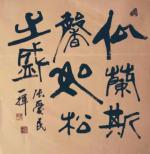 似蘭斯
馨如松
之盛